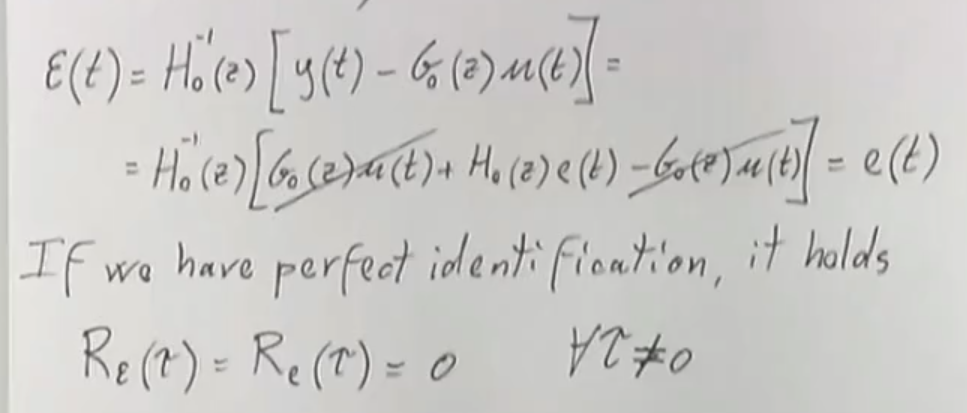 ε(t) = H₀⁻¹(z) [y(t) - G₀(z) u(t)] =
= H₀⁻¹(z) [G₀(z) u(t) + H₀(z) e(t) - G₀(z) u(t)] = e(t)
If we have perfect identification, it holds
Rε(τ) = Re(τ) = 0 ∀τ≠0